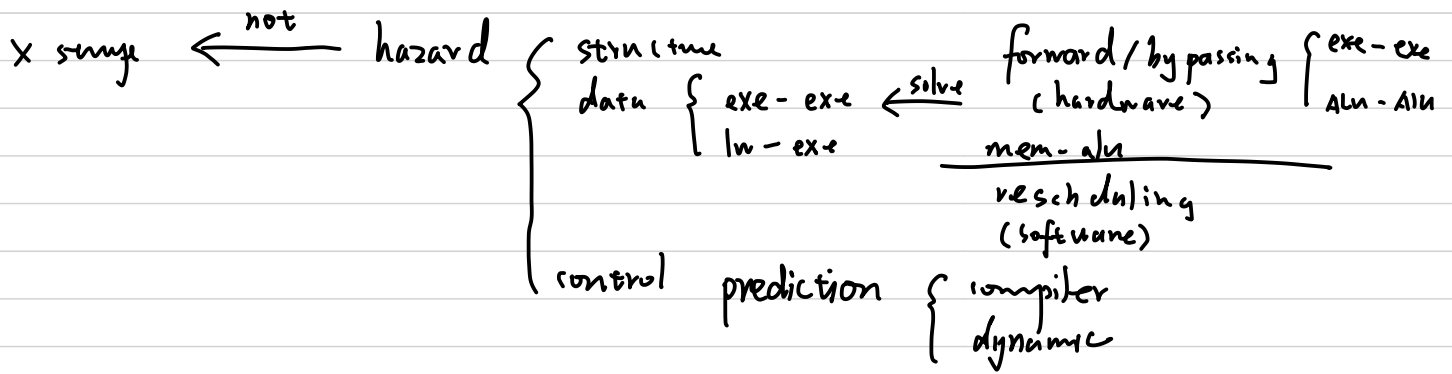 not
X stage ← hazard { structure
data { exe - exe ← solve forward / bypassing (hardware) { exe - exe
lw - exe ALU - ALU
mem - alu
rescheduling
(software)
control prediction { compiler
dynamic